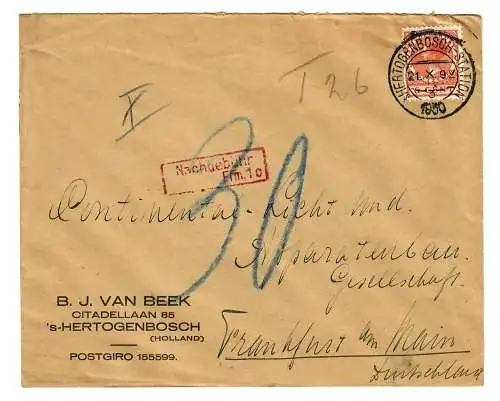 'sHERTOGENBOSCH-STATION
21.X.9V
1930
T 26
X
Nachgebühr
Ffm. 1 c
30
Continental-Licht und
Apparatenbau
Gesellschaft
Frankfurt am Main
Deutschland
B. J. VAN BEEK
CITADELLAAN 85
's-HERTOGENBOSCH
(HOLLAND)
POSTGIRO 155599.